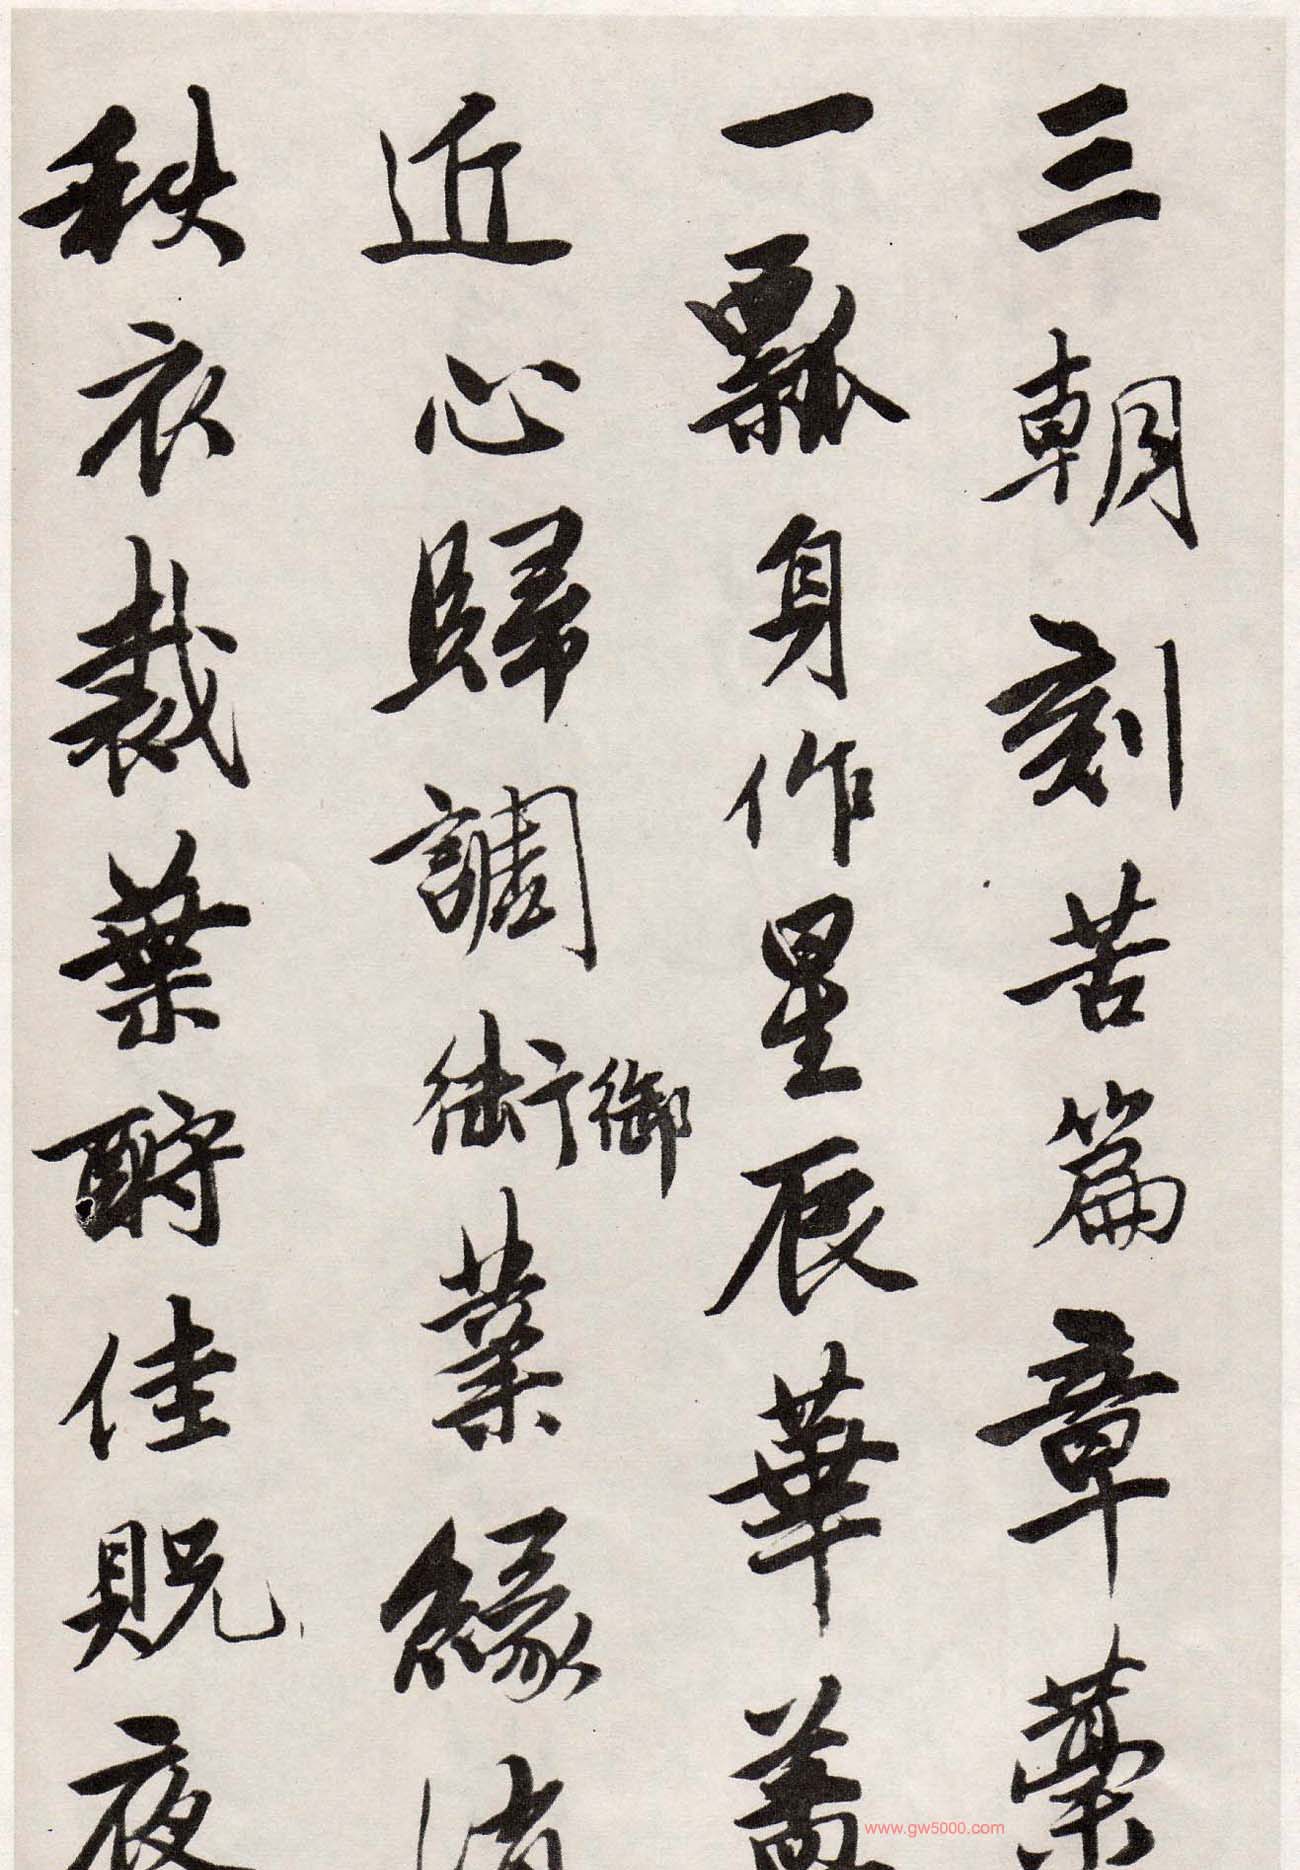 三朝刻苦篇章藁
一瓢身作星辰華
近心歸調衡御業緣消
秋衣裁葉酧佳貺夜
www.gw5000.com